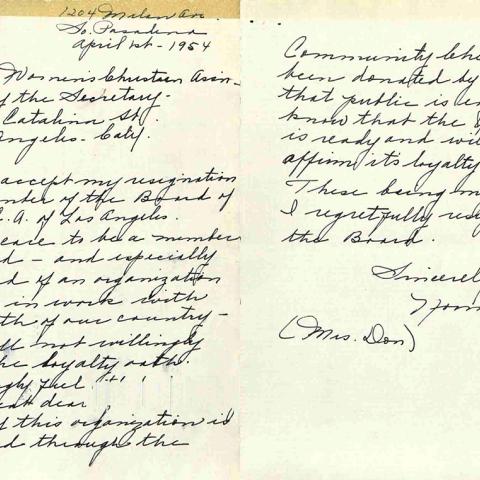 1204 Milan Ave.
So. Pasadena
April 1st - 1954
Women's Christian Assn-
f the Secretary-
Catalina St.
Angeles - Calif.
accept my resignation
mber of the Board of
.A. of Los Angeles.
care to be a member
d - and especially
d of an organization
in work with
th of our country -
ll not willingly
he loyalty oath.
gly feel
dear
f this organization is
d through the
Community Che
been donated by
that public is en
know that the
is ready and wil
affirm its loyalty
These being m
I regretfully res
the Board.
Sincerel
(Mrs. Don)